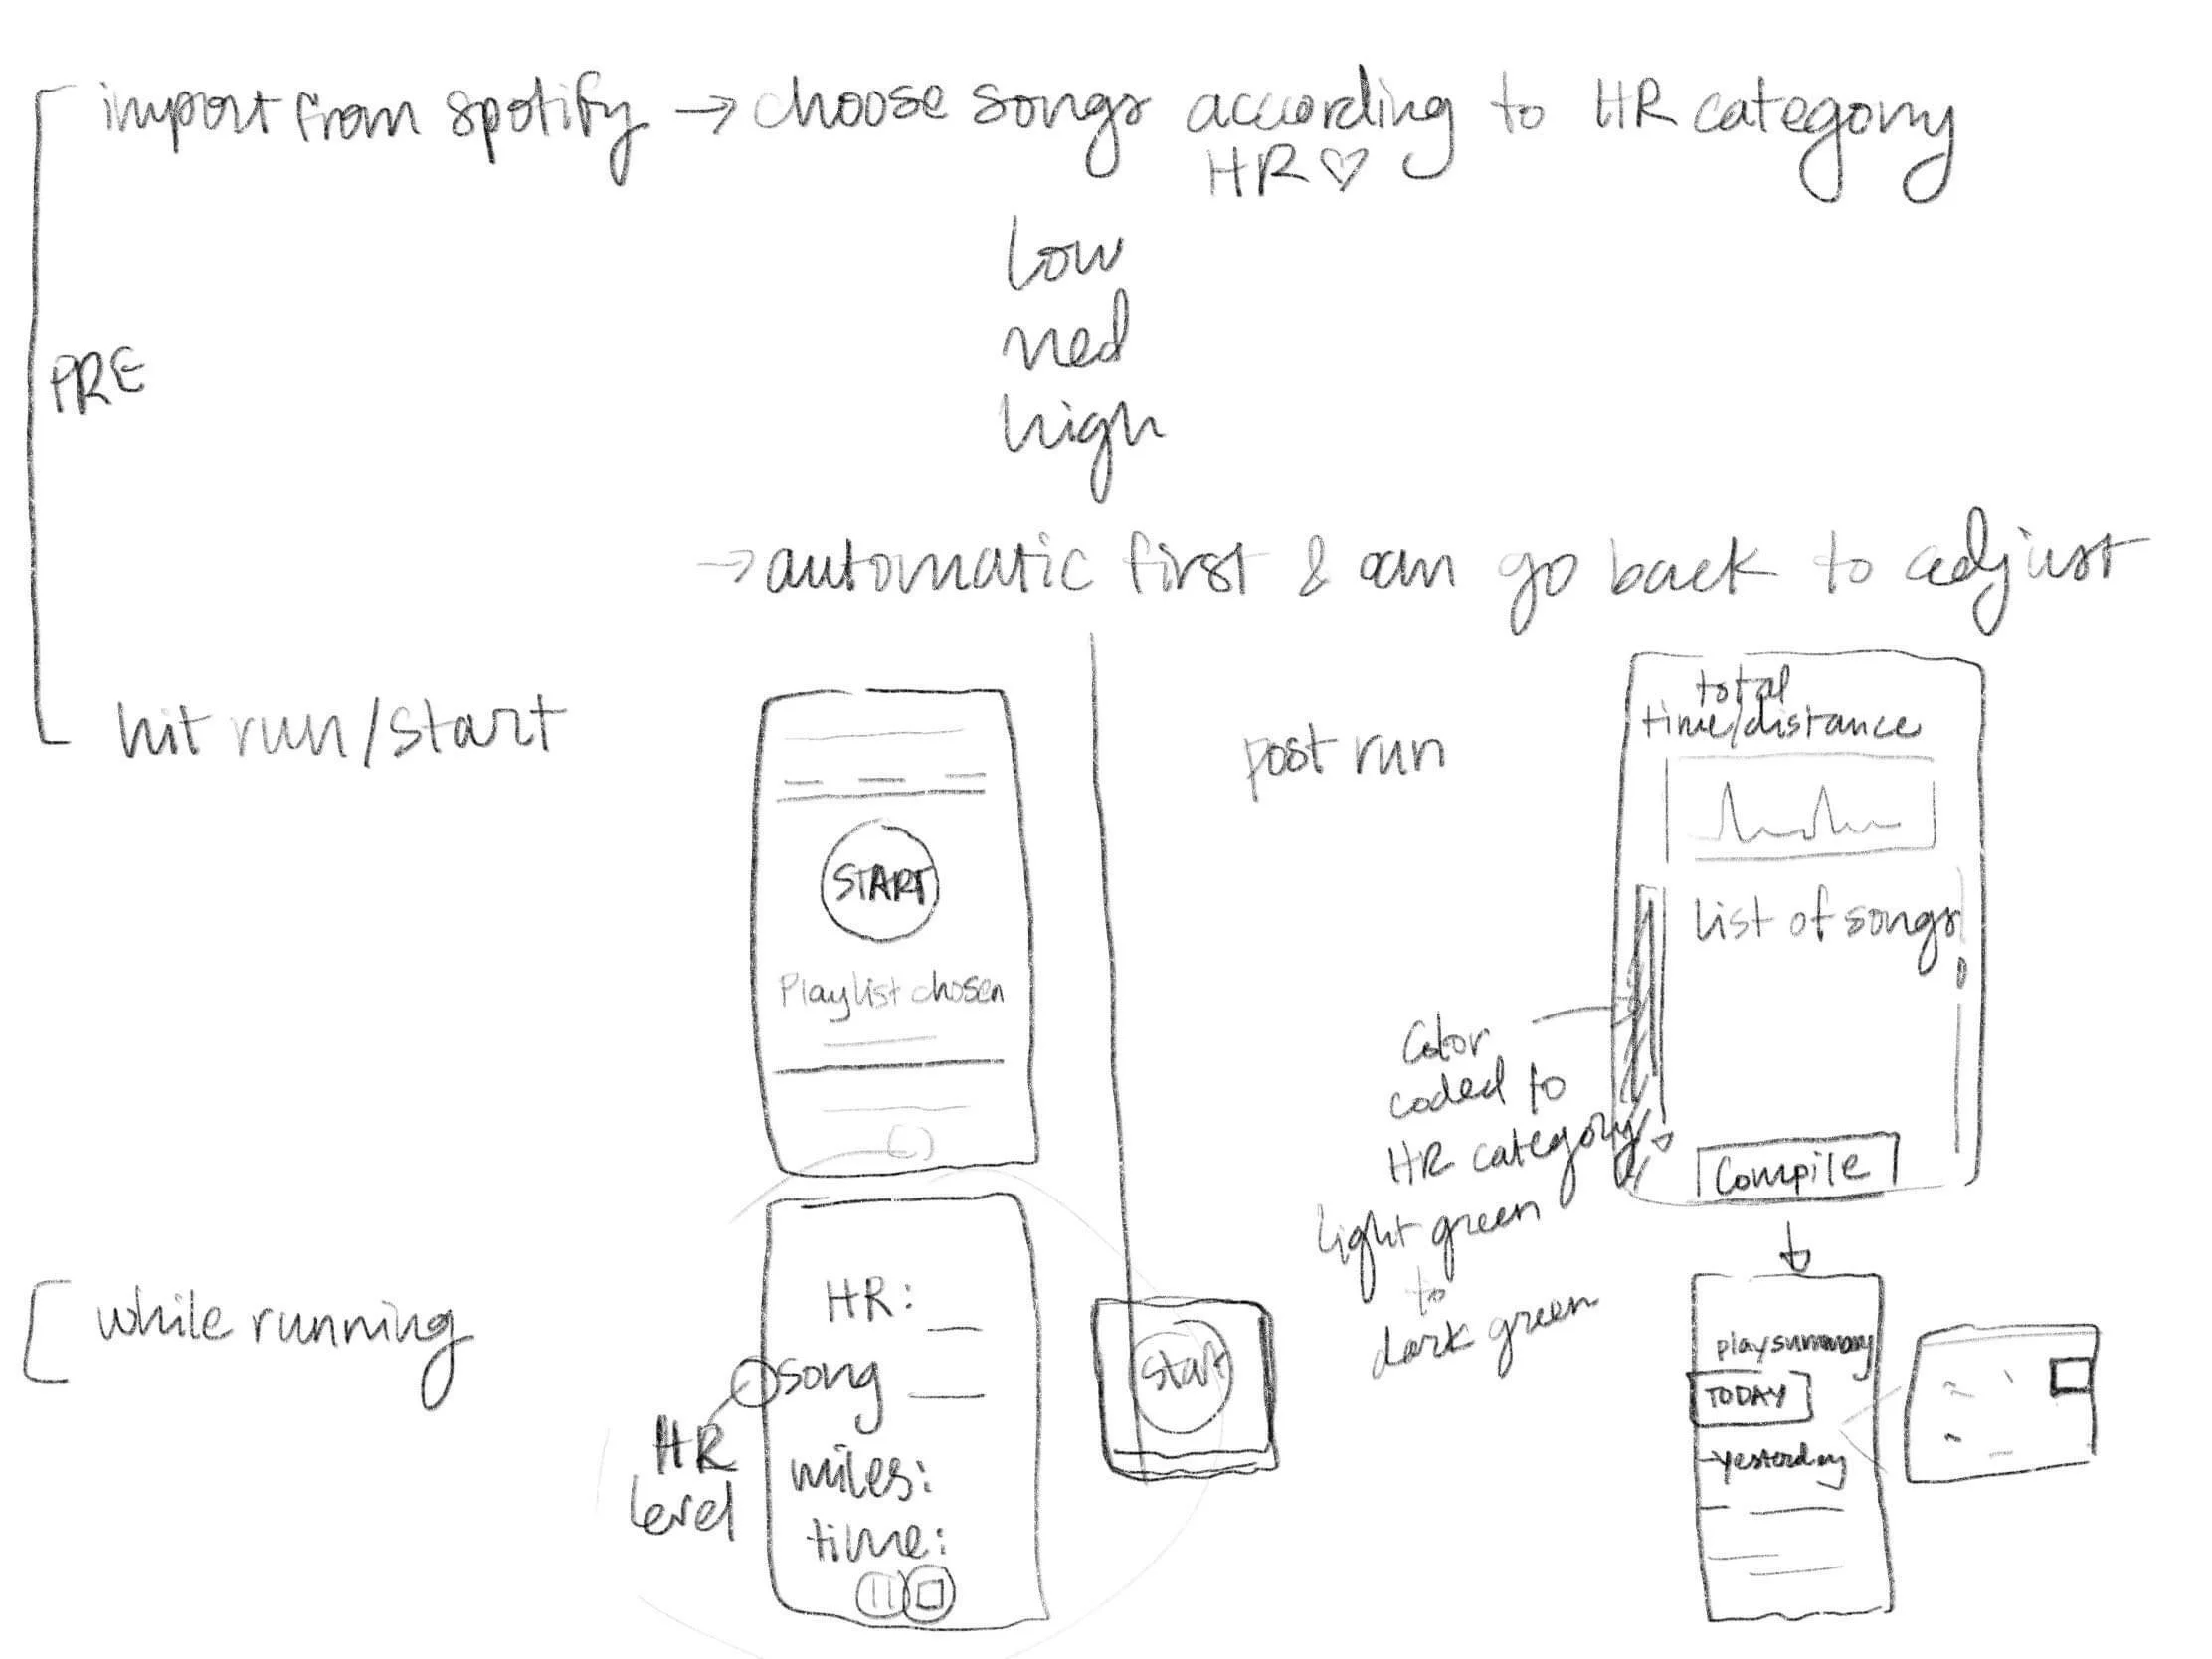 import from spotify → choose songs according to HR category
HR ♡
low
med
high
PRE
→ automatic first & can go back to adjust
hit run/start
START
Playlist chosen
while running
HR:
song
miles:
time:
HR
level
start
post run
total
time/distance
list of songs
Color
coded to
HR category
light green
to
dark green
Compile
play summary
TODAY
yesterday